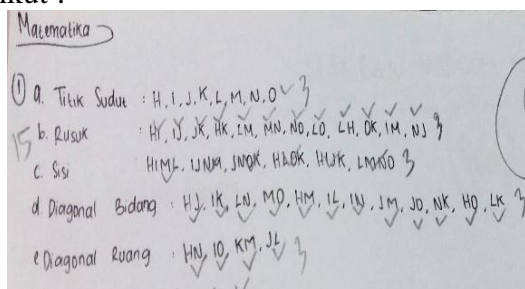 Matematika
① a. Titik Sudut : H, I, J, K, L, M, N, O 3
15 b. Rusuk : HI, IJ, JK, HK, LM, MN, NO, LO, LH, OK, IM, NJ 3
c. Sisi HIML, IJNM, JNOK, HLOK, HIJK, LMNO 3
d. Diagonal Bidang : HJ, IK, LN, MO, HM, IL, IN, JM, JO, NK, HO, LK 3
e Diagonal Ruang : HN, IO, KM, JL 3